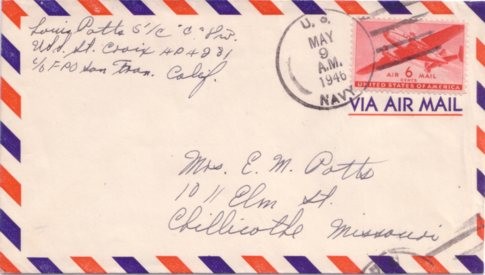 Louis Potts S 1/c "C" Div.
U.S.S. St. Croix APA 231
c/o F.P.O San Fran. Calif.
U. S.
MAY
9
A.M.
1946
NAVY
AIR 6 MAIL
CENTS
UNITED STATES OF AMERICA
VIA AIR MAIL
Mrs. E. M. Potts
1011 Elm St.
Chillicothe Missouri